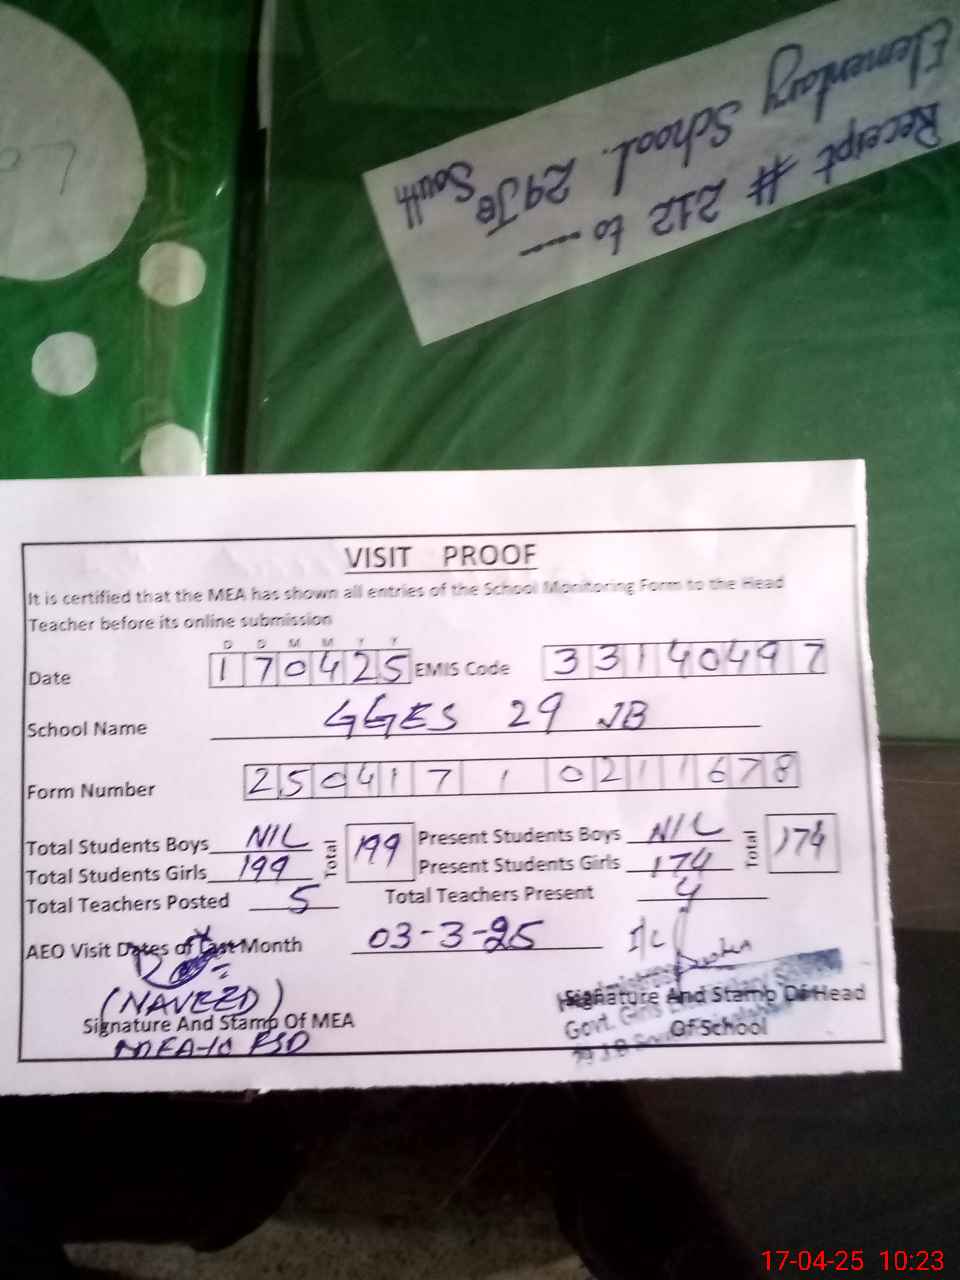 Elementary School. 29JB South
Receipt # 212 to ----
VISIT PROOF
It is certified that the MEA has shown all entries of the School Monitoring Form to the Head
Teacher before its online submission
D D M M Y Y
Date 170425 EMIS Code 33140497
School Name GGES 29 JB
Form Number 250417 1 0211678
Total Students Boys NIL Total 199 Present Students Boys NIL Total 174
Total Students Girls 199 Present Students Girls 174
Total Teachers Posted 5 Total Teachers Present 4
AEO Visit Dates of Last Month 03-3-25 I/C
(NAVEED)
Signature And Stamp Of MEA Signature And Stamp Of Head
Of School
MEA-10 FSD
Govt. Girls
17-04-25 10:23